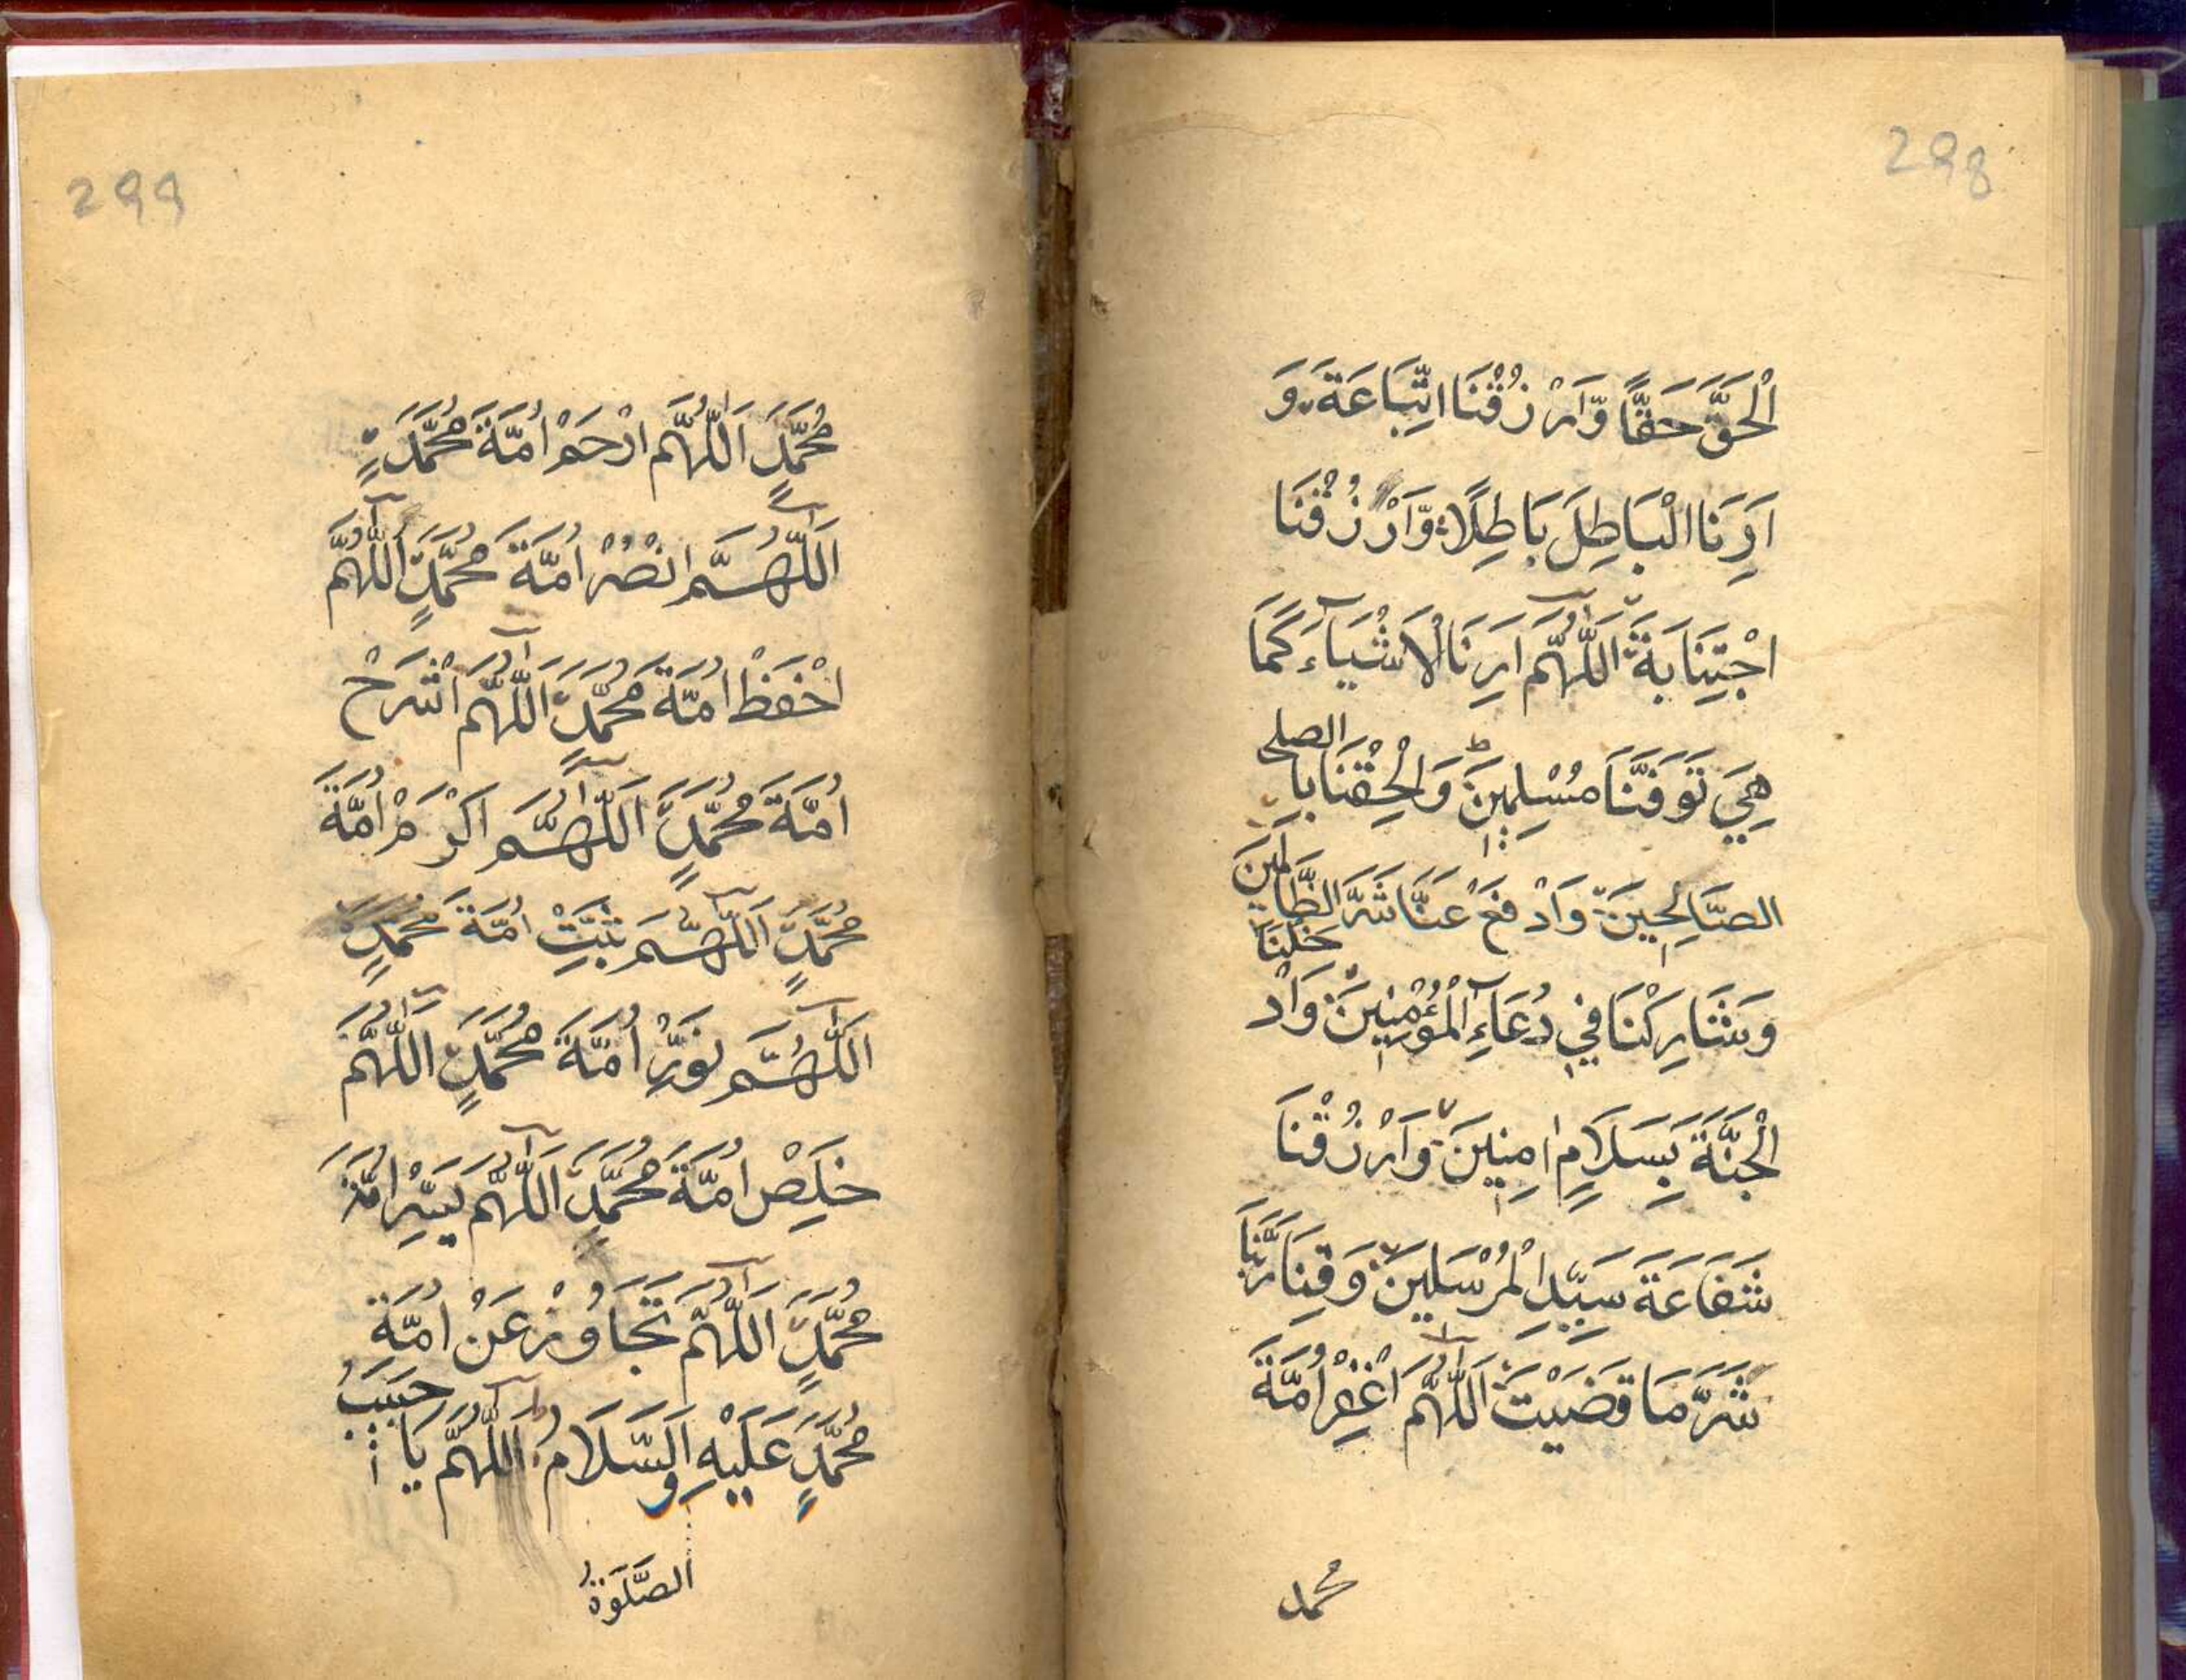 298
الْحَقَّ حَقًّا وَّارْزُقْنَا اتِّبَاعَةَ وَ
اَرِنَا الْبَاطِلَ بَاطِلًا وَّارْزُقْنَا
اجْتِنَابَةَ اَللّٰهُمَّ اَرِنَا لْاَشْيَآءَ كَمَا
هِيَ تَوَفَّنَا مُسْلِمِيْنَ وَّالْحِقْنَا بِالصلح
الصَّالِحِيْنَ وَادْفَعْ عَنَّا شَرَّ الظَّالِمِيْنَ
وَشَارِكْنَا فِيْ دُعَآءِ الْمُؤْمِنِيْنَ وَادْ خَلْنَا
الْجَنَّةَ بِسَلَامٍ اٰمِنِيْنَ وَارْزُقْنَا
شَفَاعَةَ سَيِّدِ الْمُرْسَلِيْنَ وَقِنَا رَبَّنَا
شَرَّ مَا قَضَيْتَ اَللّٰهُمَّ اغْفِرْ اُمَّةَ
محمد
299
مُحَمَّدٍ اَللّٰهُمَّ ارْحَمْ اُمَّةَ مُحَمَّدٍ
اَللّٰهُمَّ انْصُرْ اُمَّةَ مُحَمَّدٍ اَللّٰهُمَّ
احْفَظْ اُمَّةَ مُحَمَّدٍ اَللّٰهُمَّ اشْرَحْ
اُمَّةَ مُحَمَّدٍ اَللّٰهُمَّ اَكْرَمْ اُمَّةَ
مُحَمَّدٍ اَللّٰهُمَّ ثَبِّتْ اُمَّةَ مُحَمَّدٍ
اَللّٰهُمَّ نَوِّرْ اُمَّةَ مُحَمَّدٍ اَللّٰهُمَّ
خَلِّصْ اُمَّةَ مُحَمَّدٍ اَللّٰهُمَّ يَسِّرْ اُمَّةَ
مُحَمَّدٍ اَللّٰهُمَّ تَجَاوَزْ عَنْ اُمَّةَ
مُحَمَّدٍ عَلَيْهِ وَالسَّلَامُ اَللّٰهُمَّ يَا حَبِيبُ
الصَّلٰوةُ